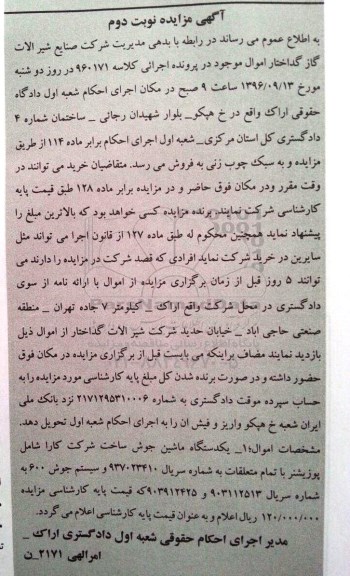 آگهی مزایده نوبت دوم
به اطلاع عموم می رساند در رابطه با بدهی مدیریت شرکت صنایع شیر الات
گاز گداختار اموال موجود در پرونده اجرائی کلاسه ۹۶۰۱۷۱ در روز دو شنبه
مورخ ۱۳۹۶/۰۹/۱۳ ساعت ۹ صبح در مکان اجرای احکام شعبه اول دادگاه
حقوقی اراک واقع در خ هپکو_ بلوار شهیدان رجائی _ ساختمان شماره ۴
دادگستری کل استان مرکزی_ شعبه اول اجرای احکام برابر ماده ۱۱۴ از طریق
مزایده و به سبک چوب زنی به فروش می رسد. متقاضیان خرید می توانند در
وقت مقرر ودر مکان فوق حاضر و در مزایده برابر ماده ۱۲۸ طبق قیمت پایه
کارشناسی شرکت نمایند. برنده مزایده کسی خواهد بود که بالاترین مبلغ را
پیشنهاد نماید همچنین محکوم له طبق ماده ۱۲۷ از قانون اجرا می تواند مثل
سایرین در خرید شرکت نماید افرادی که قصد شرکت در مزایده را دارند می
توانند ۵ روز قبل از زمان برگزاری مزایده از اموال با ارائه نامه از سوی
دادگستری در محل شرکت واقع اراک _ کیلومتر ۷ جاده تهران _ منطقه
صنعتی حاجی اباد _ خیابان حدید شرکت شیر الات گداختار از اموال ذیل
بازدید نمایند مضاف براینکه می بایست قبل از برگزاری مزایده در مکان فوق
حضور داشته و در صورت برنده شدن کل مبلغ پایه کارشناسی مورد مزایده را به
حساب سپرده موقت دادگستری به شماره ۲۱۷۱۲۹۵۳۱۰۰۰۶ نزد بانک ملی
ایران شعبه خ هپکو واریز و فیش ان را به اجرای احکام شعبه اول تحویل دهد.
مشخصات اموال؛۱_ یکدستگاه ماشین جوش ساخت شرکت کارا شامل
پوزیشنر با تمام متعلقات به شماره سریال ۹۳۷۰۲۳۴۱۰ و سیستم جوش ۶۰۰ به
شماره سریال ۹۰۳۱۱۲۵۱۳ و ۹۰۳۹۱۲۴۲۵که قیمت پایه کارشناسی مزایده
۱۲۰/۰۰۰/۰۰۰ ریال اعلام و به عنوان قیمت پایه کارشناسی اعلام می گردد.
مدیر اجرای احکام حقوقی شعبه اول دادگستری اراک _
امرالهی ۲۱۷۱_ن